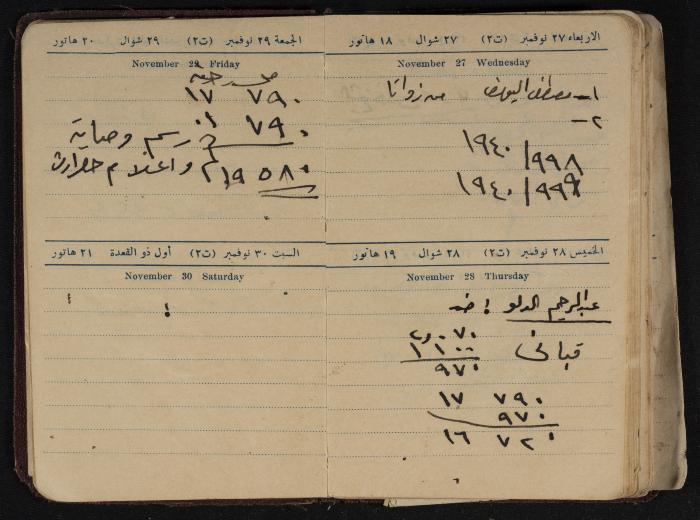 الاربعاء ٢٧ نوفمبر (ت٢) ٢٧ شوال ١٨ هاتور
November 27 Wednesday
١-
٢-
١٩٤٠/٩٩٨
١٩٤٠/٩٩٩
الخميس ٢٨ نوفمبر (ت٢) ٢٨ شوال ١٩ هاتور
November 28 Thursday
عبدالرحيم الدلو ! ضد
قبانى
١١٠٠
٩٧٠
١٧ ٧٩٠
٩٧٠
١٦ ٧٢٠
الجمعة ٢٩ نوفمبر (ت٢) ٢٩ شوال ٢٠ هاتور
November 29 Friday
١٧ ٧٩٠
٠١ ٧٩٠
رسم وصاية
واعلام
١٩ ٥٨٠
السبت ٣٠ نوفمبر (ت٢) أول ذو القعدة ٢١ هاتور
November 30 Saturday
!